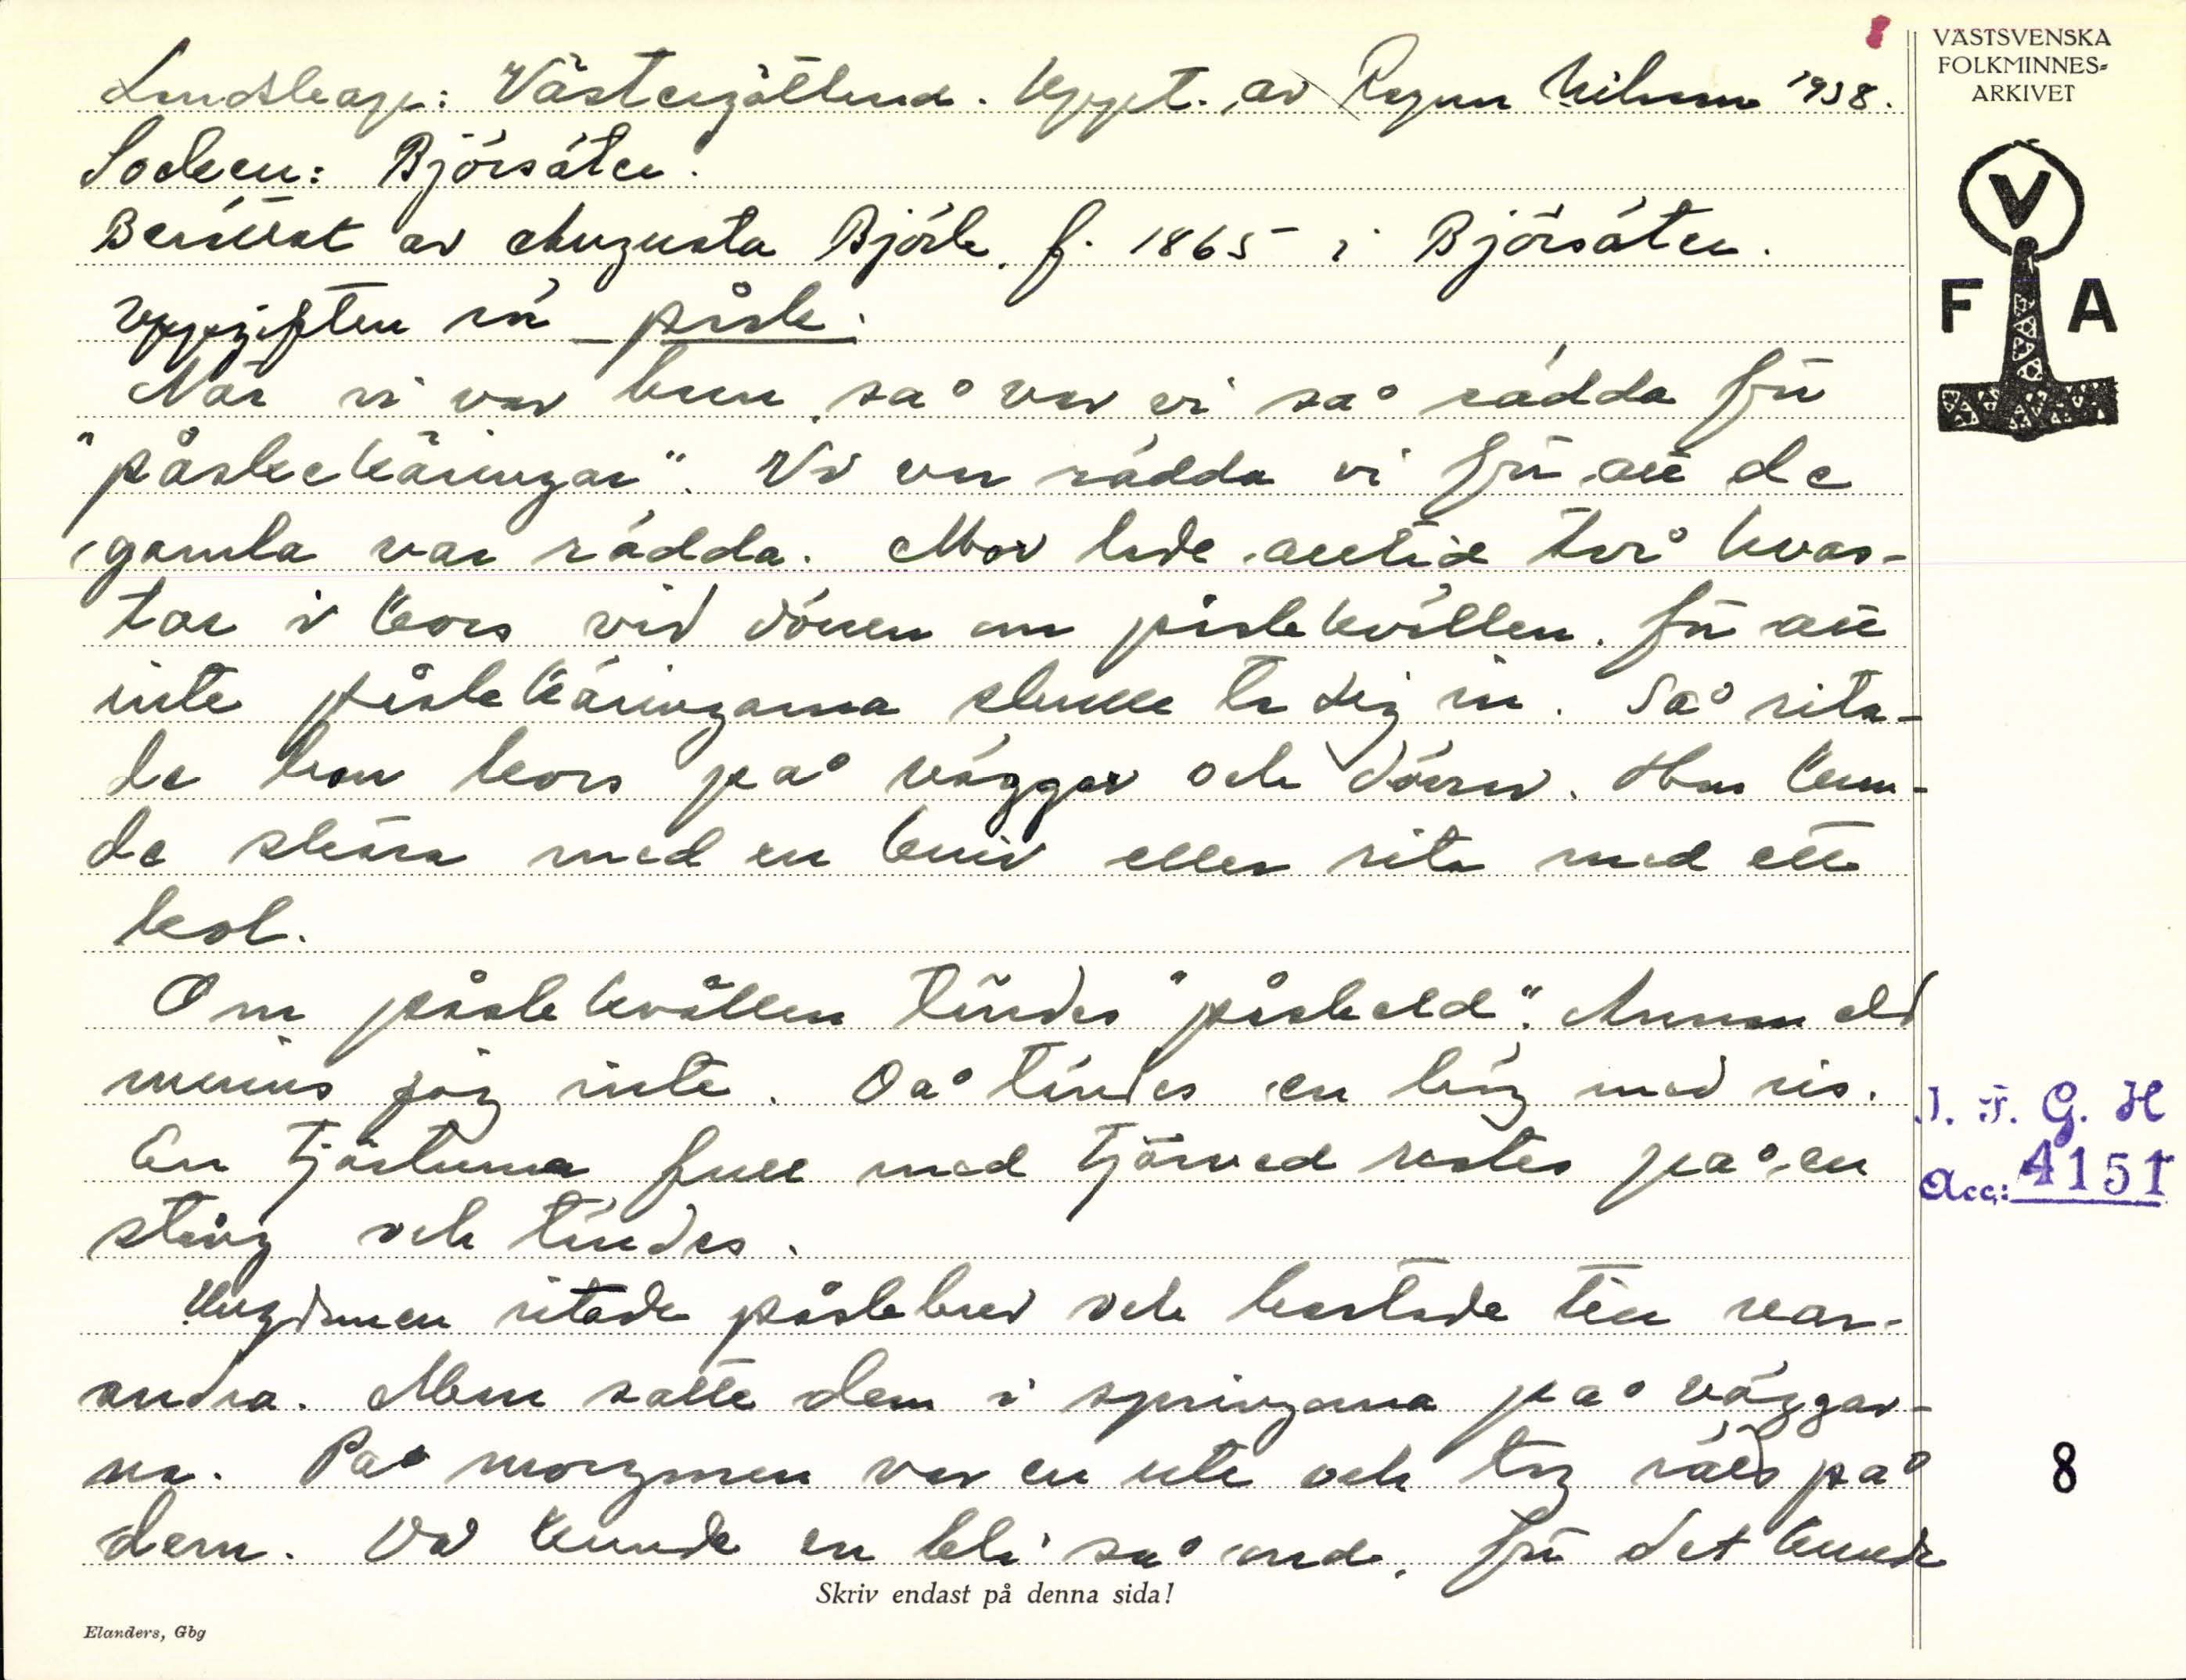 VÄSTSVENSKA
FOLKMINNES-
ARKIVET
V
F A
Landskap: Västergötland. Uppt. av Ragnar Nilsson 1938.
Socken: Björsäter.
Berättat av Augusta Björk, f. 1865 i Björsäter.
Uppgiften rör påsk.
När vi var barn, så var vi så rädda för
"påskekäringar". Vi var rädda vi för att de
gamla var rädda. Mor lade alltid två kvas-
tar i kors vid dörren om påskkvällen, för att
inte påskkäringarna skulle ta sig in. Så rita-
de hon kors på väggar och dörrar. Hon kun-
de skära med en kniv eller rita med ett
kol.
Om påskkvällen tändes "påskeld". Annan eld
minns jag inte. Då tändes en hög med ris.
En tjärtunna full med tjärved restes på en
stång och tändes.
Ungdomen ritade påskbrev och kastade till var-
andra. Man satte dem i springorna på väggar-
na. På morgonen var en ute och tog rätt på
dem. Då kunde en bli så ond, för det kunde
J. F. G. H
Acc: 4151
8
Skriv endast på denna sida!
Elanders, Gbg